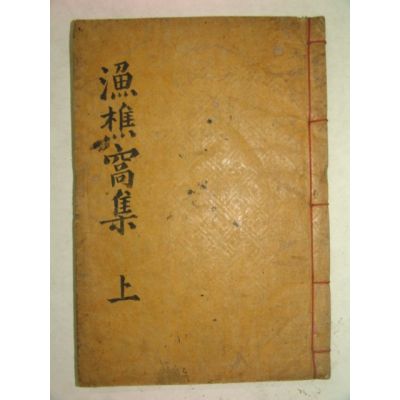 漁樵窩集 上